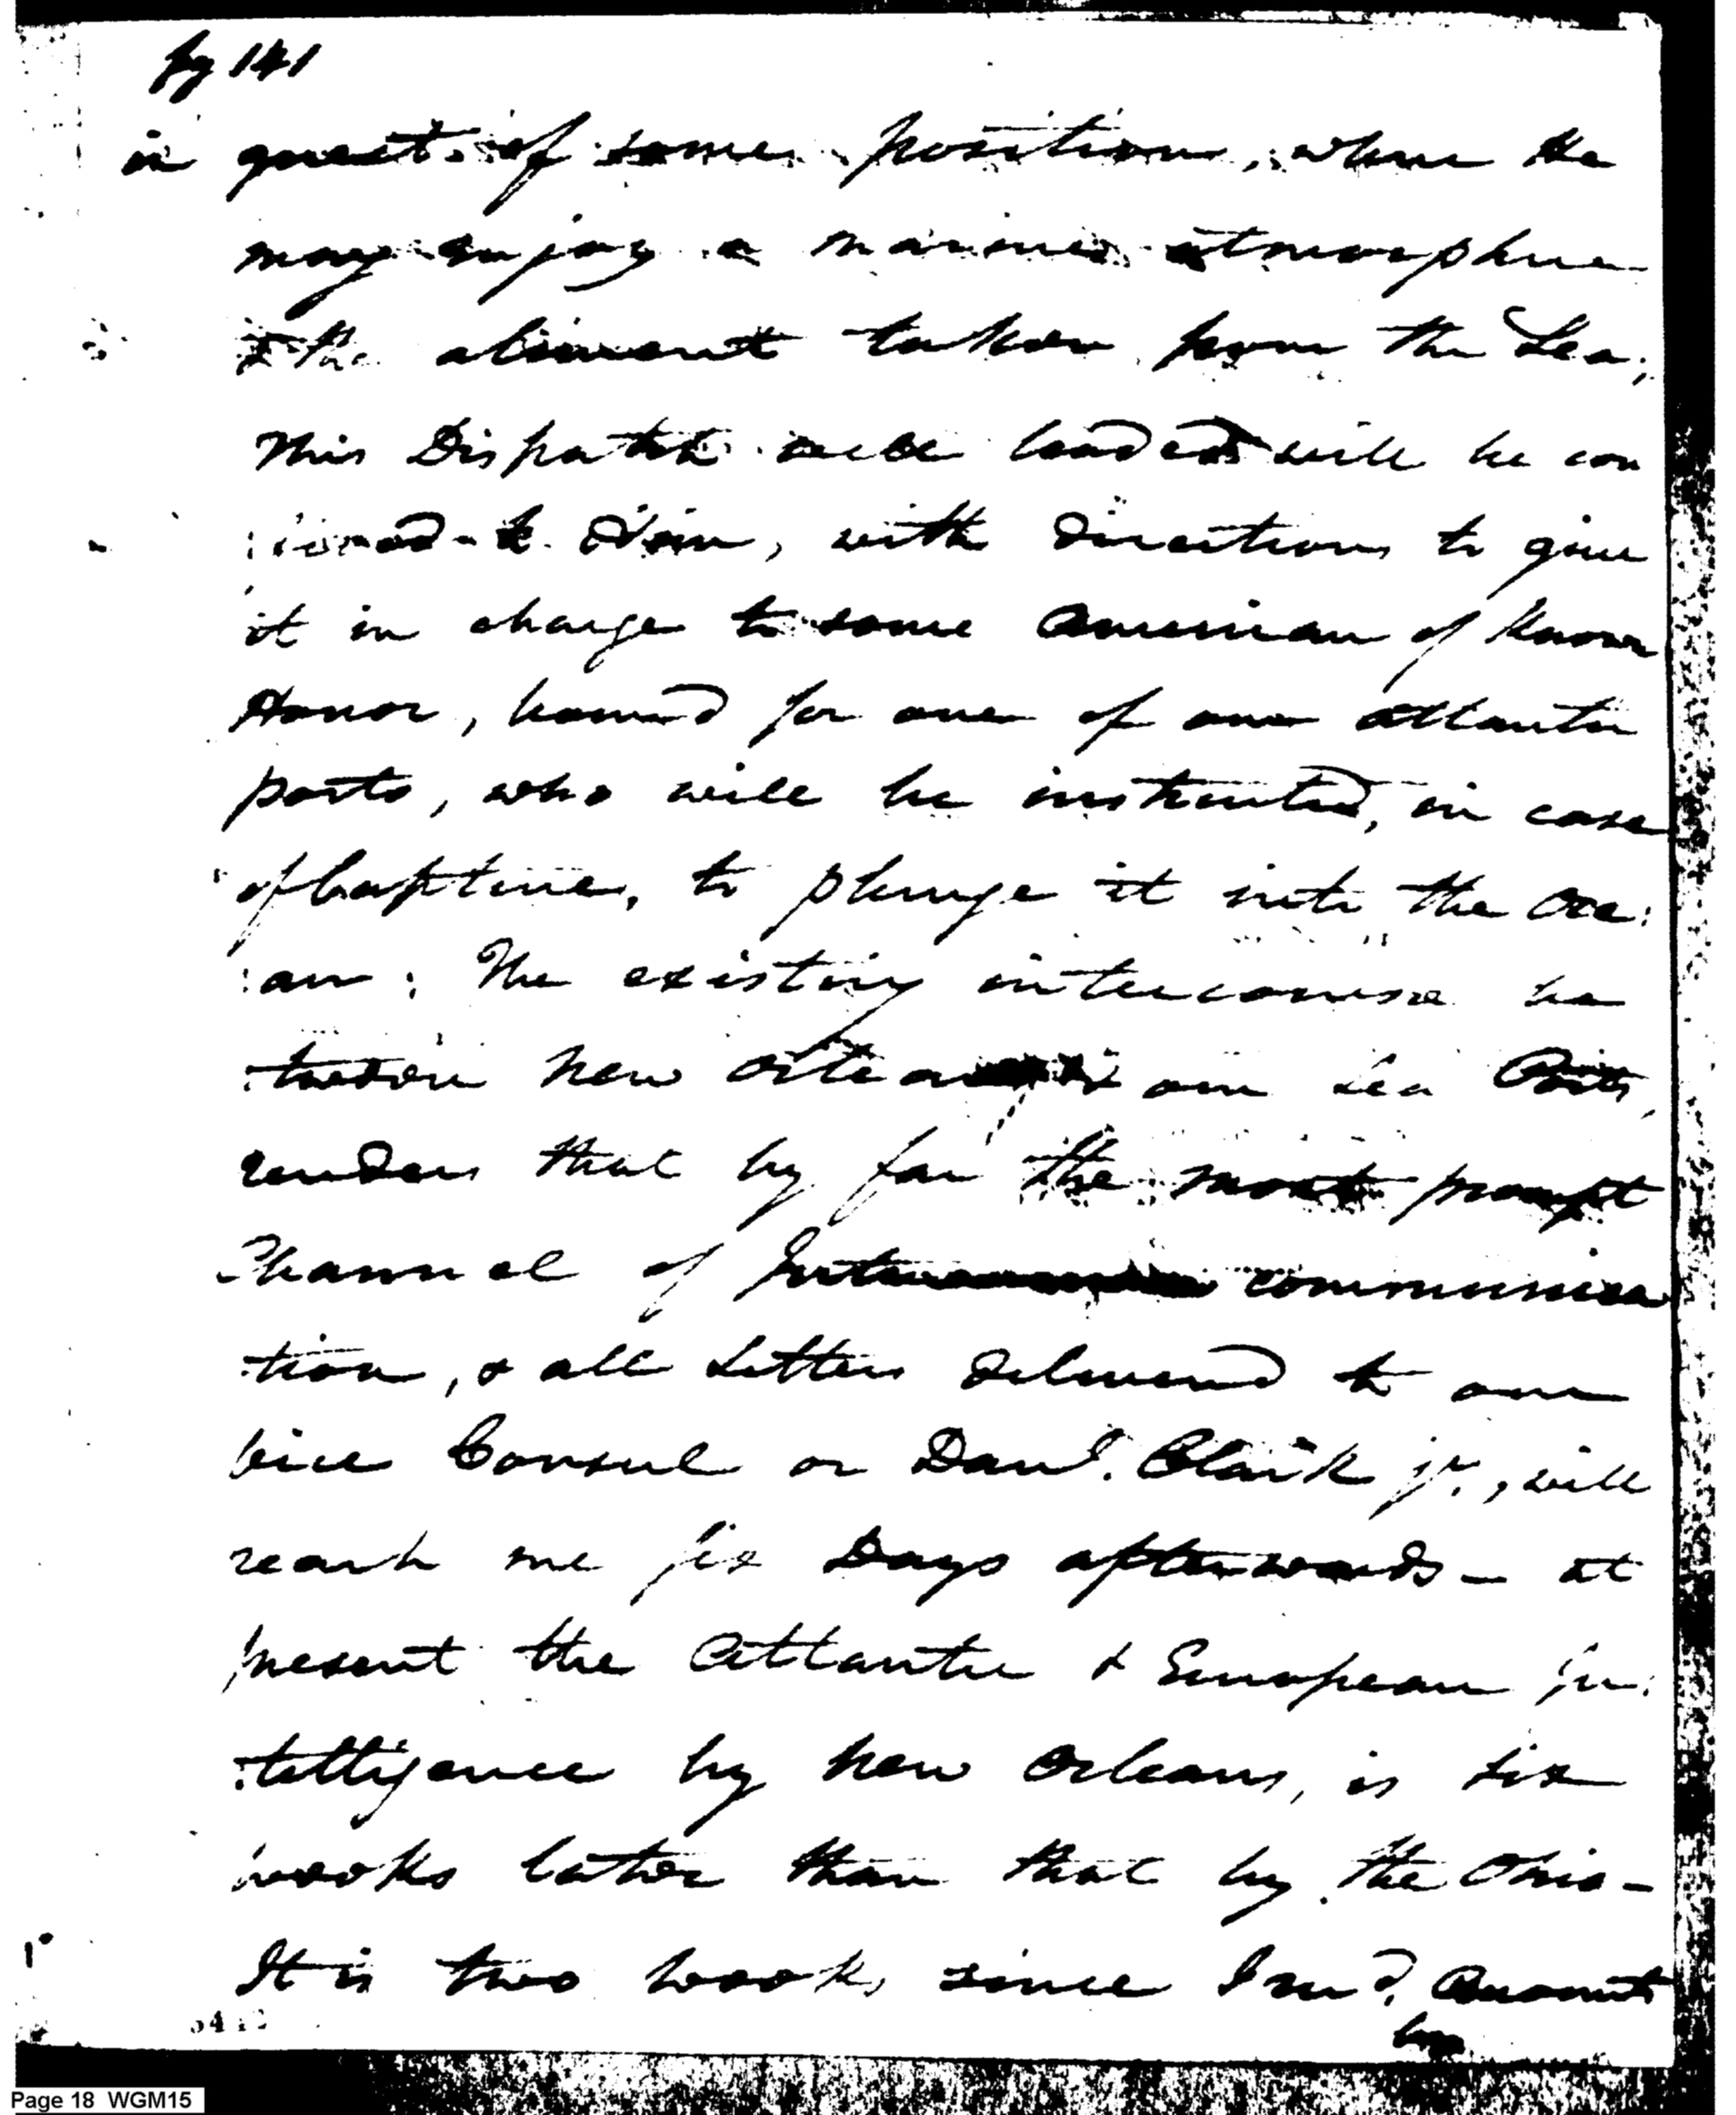 pg 141
in quest of some position, where He
may enjoy a marine atmosphere
& the aliment taken from the Sea;
This Dispatch well leaded will be con
:signed to Him, with directions to give
it in charge to some American of known
Honor, bound for one of our Atlantic
ports, who will be instructed, in case
of Capture, to plunge it into the Oce:
:an: The existing intercourse be
:tween New Orleans & our Sea Ports,
renders that by far the most prompt
Channel of communica
:tion, & all Letters delivered to our
vice Consul or Danl. Clark jr., will
reach me six Days afterwards — at
present the Atlantic & European In:
:telligence by New Orleans, is six
weeks later than that by the Ohio —
It is two weeks since I recd. Accounts
by
5412
Page 18 WGM15